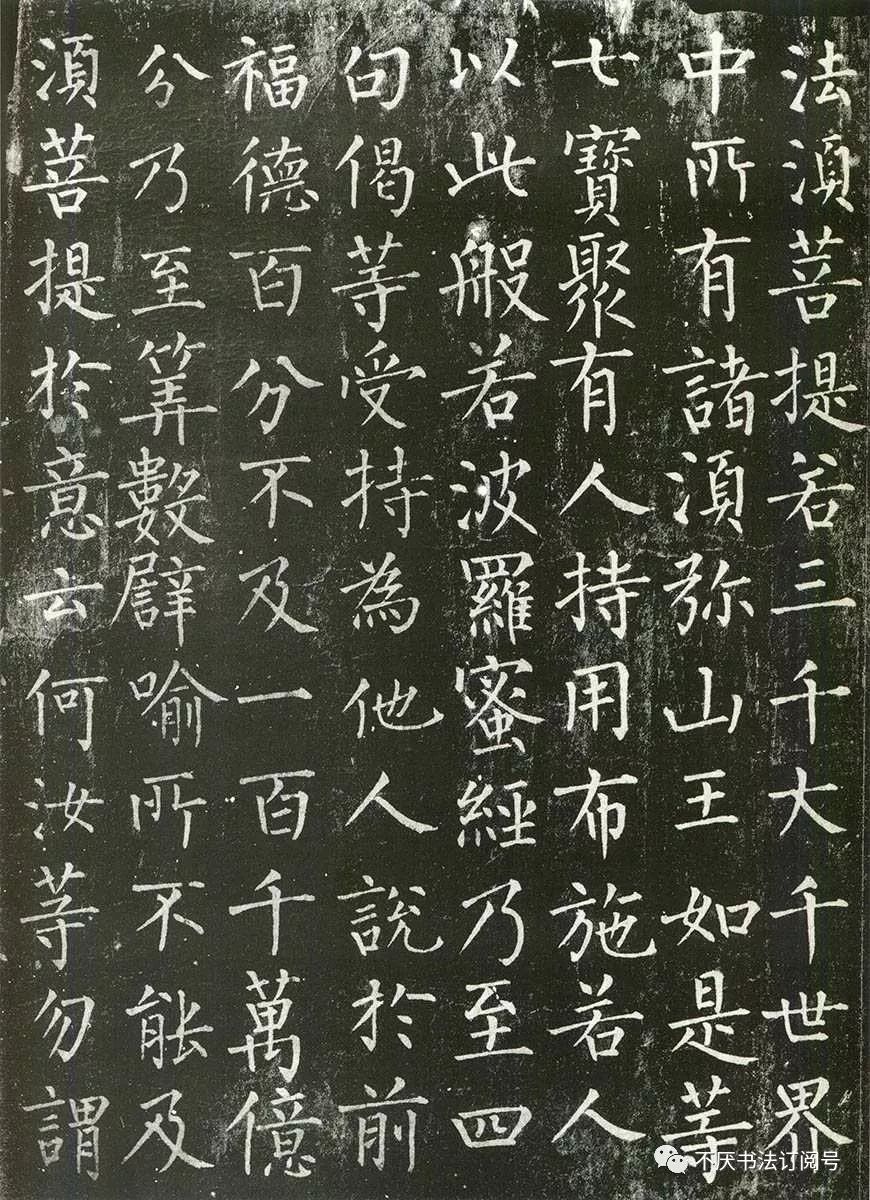 法須菩提若三千大千世界
中所有諸須弥山王如是等
七寶聚有人持用布施若人
以此般若波羅蜜經乃至四
句偈等受持為他人說於前
福德百分不及一百千萬億
分乃至筭數譬喻所不能及
須菩提於意云何汝等勿謂
不厌书法订阅号